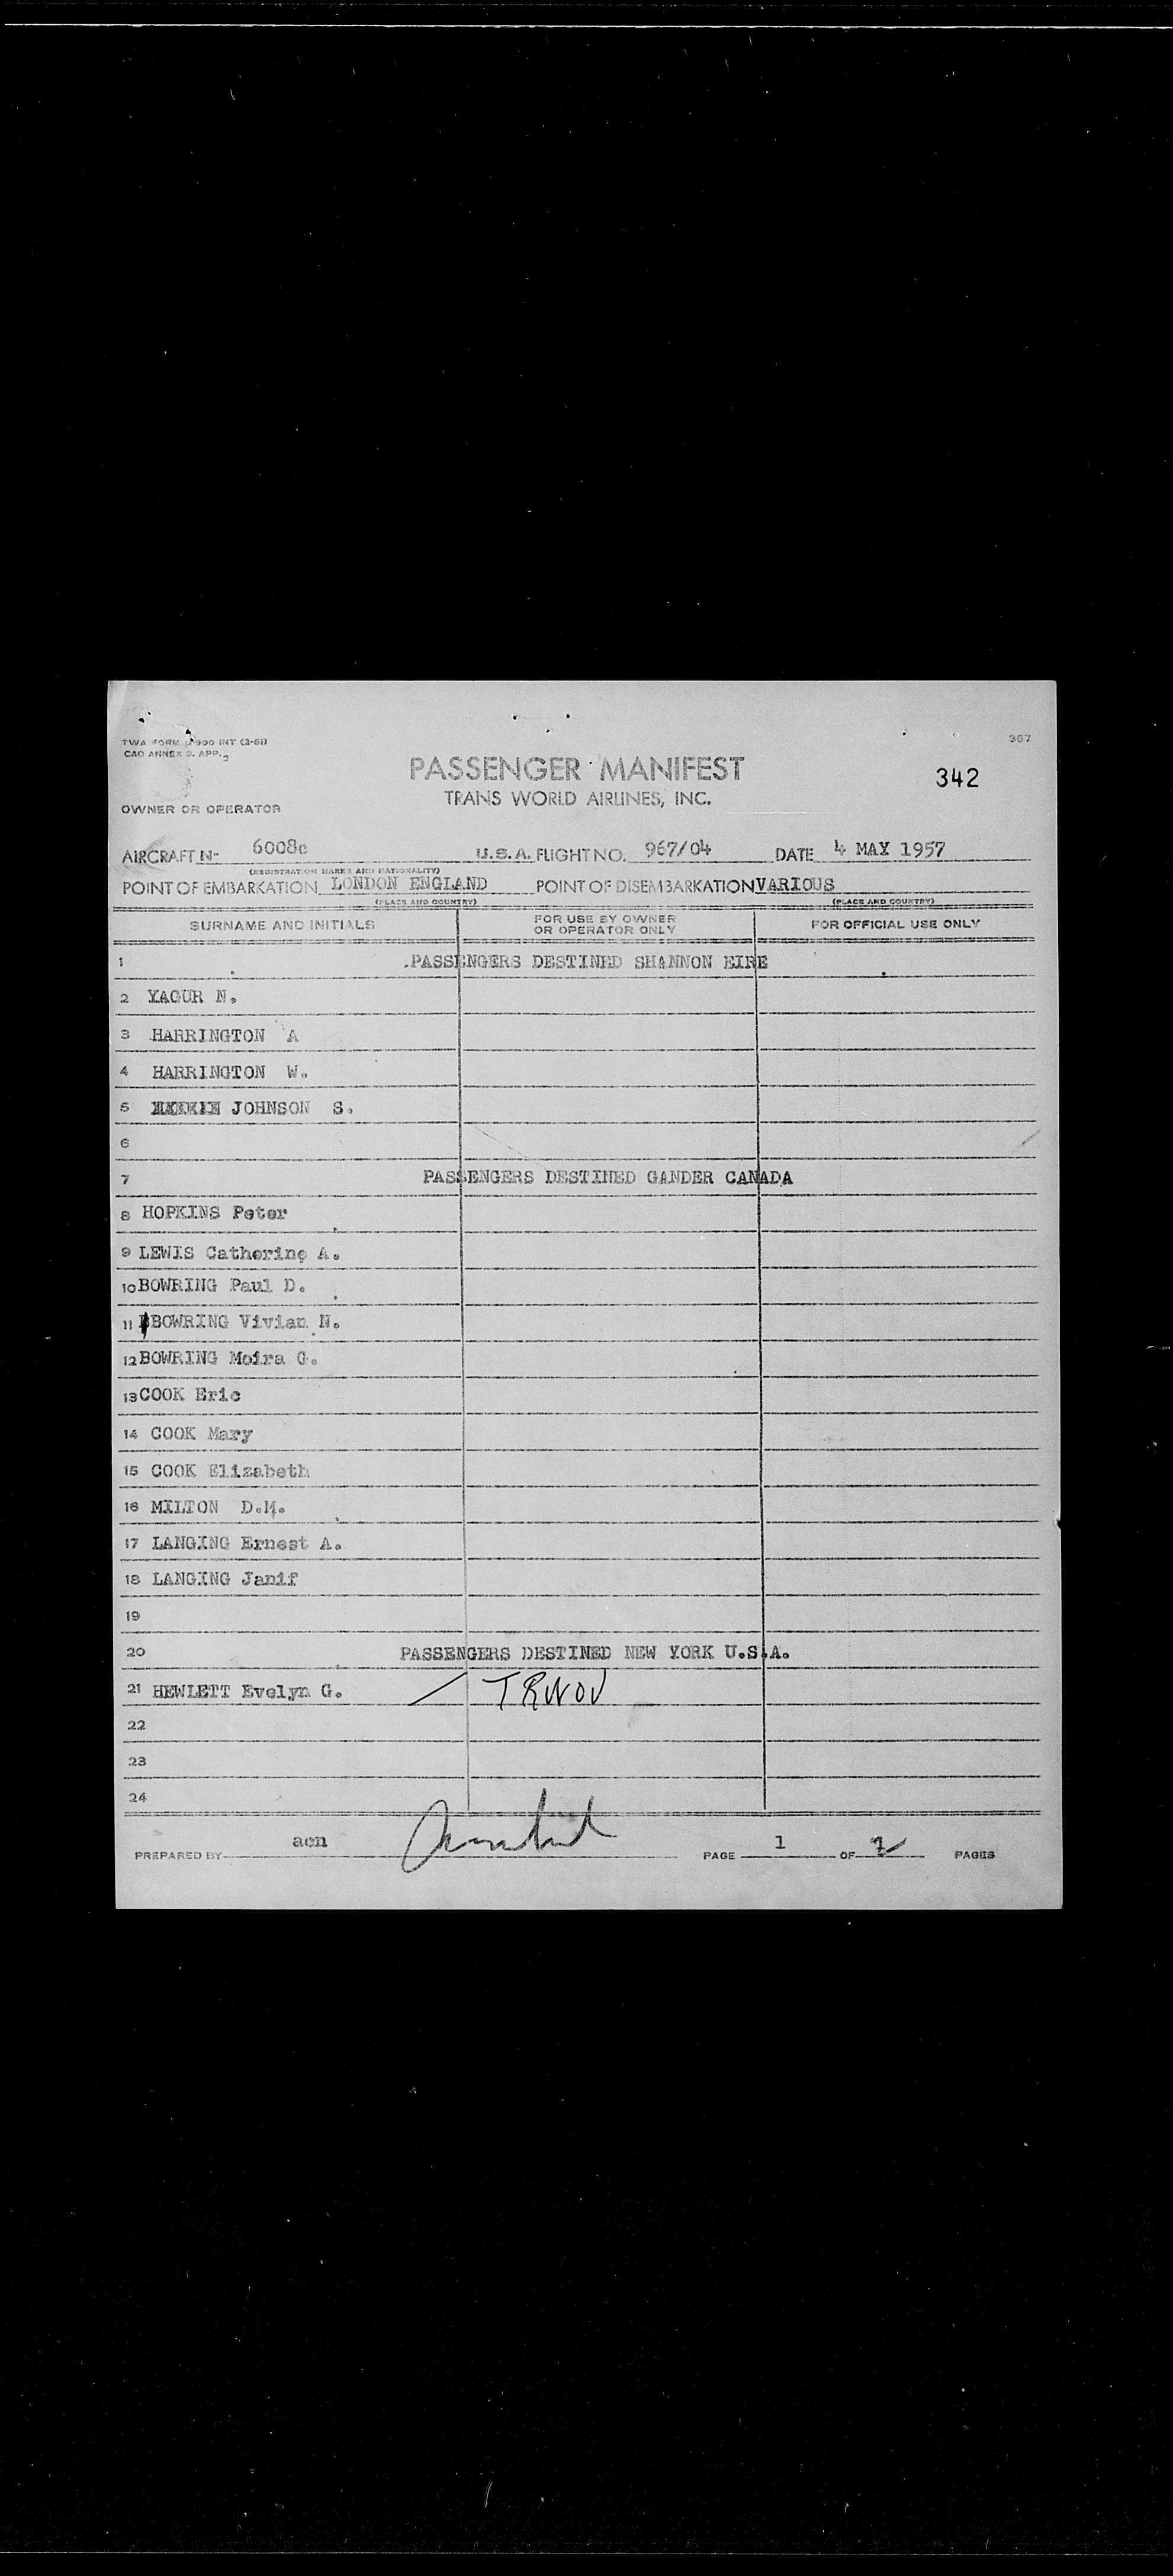 367
TWA FORM
CAO ANNEX 9. APP.
PASSENGER MANIFEST
342
TRANS WORLD AIRLINES, INC.
OWNER OR OPERATOR
AIRCRAFT N- 6008c U.S.A. FLIGHT NO. 967/04 DATE 4 MAY 1957
(REGISTRATION MARKS AND NATIONALITY)
POINT OF EMBARKATION LONDON ENGLAND POINT OF DISEMBARKATION VARIOUS
(PLACE AND COUNTRY) (PLACE AND COUNTRY)
SURNAME AND INITIALS FOR USE BY OWNER OR OPERATOR ONLY FOR OFFICIAL USE ONLY
1 .PASSENGERS DESTINED SHANNON EIRE
2 YAGUR N.
3 HARRINGTON A
4 HARRINGTON W.
5 JOHNSON S.
6
7 PASSENGERS DESTINED GANDER CANADA
8 HOPKINS Peter
9 LEWIS Catherine A.
10 BOWRING Paul D.
11 BOWRING Vivian N.
12 BOWRING Moira G.
13 COOK Eric
14 COOK Mary
15 COOK Elizabeth
16 MILTON D.M.
17 LANGING Ernest A.
18 LANGING Janif
19
20 PASSENGERS DESTINED NEW YORK U.S.A.
21 HEWLETT Evelyn G. / TRWOV
22
23
24
PREPARED BY acn PAGE 1 OF 2 PAGES